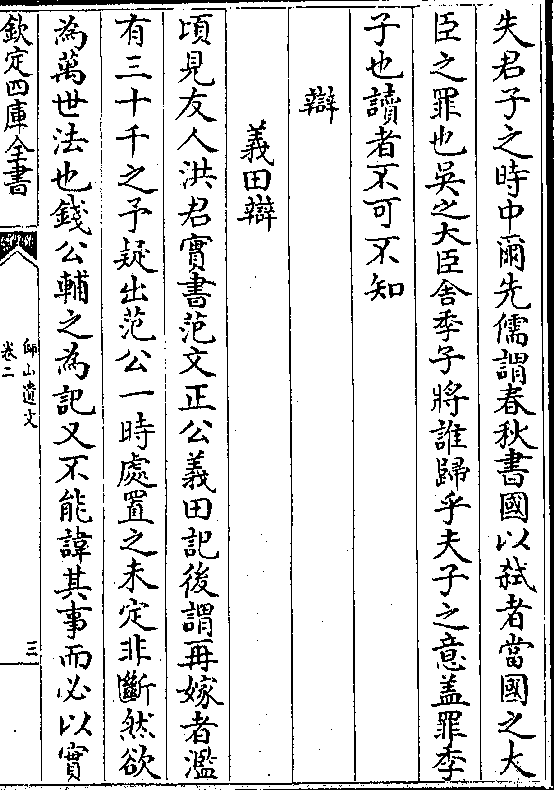 失君子之時中爾先儒謂春秋書國以弑者當國之大
臣之罪也吳之大臣舍季子將誰歸乎夫子之意盖罪季
子也讀者不可不知
辯
義田辯
頃見友人洪君實書范文正公義田記後謂再嫁者濫
有三十千之予疑出范公一時處置之未定非斷然欲
為萬世法也錢公輔之為記又不能諱其事而必以實
欽定四庫全書
師山遺文
卷二
三